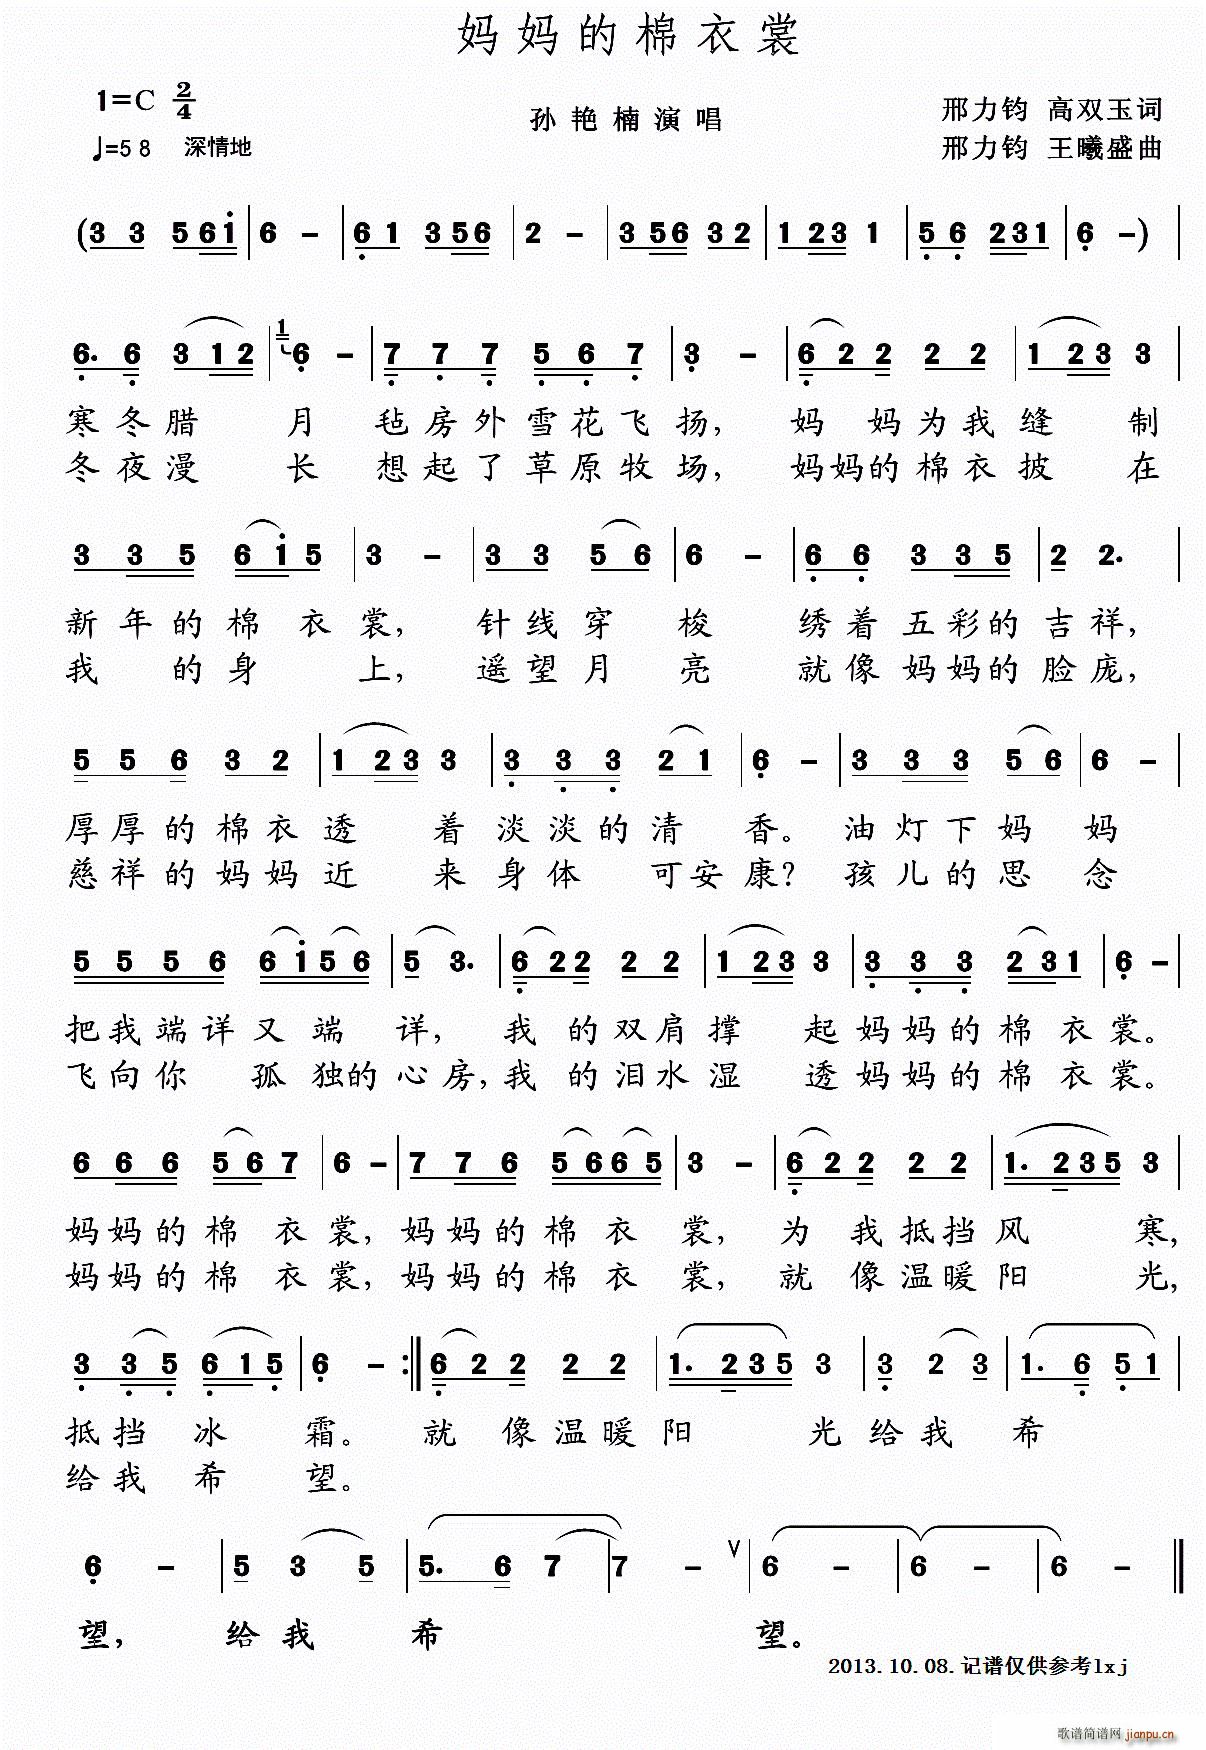 妈妈的棉衣裳
1=C 2/4
孙艳楠演唱
邢力钧 高双玉词
♩=58 深情地
邢力钧 王曦盛曲
(3 3 5 6 i | 6 - | 6 1 3 5 6 | 2 - | 3 5 6 3 2 | 1 2 3 1 | 5 6 2 3 1 | 6 - ) |
6. 6 3 1 2 | 1 6 - | 7 7 7 5 6 7 | 3 - | 6 2 2 2 2 | 1 2 3 3 |
寒冬腊 月 毡房外雪花飞扬， 妈 妈为我缝 制
冬夜漫 长 想起了草原牧场， 妈妈的棉衣披 在
3 3 5 6 i 5 | 3 - | 3 3 5 6 | 6 - | 6 6 3 3 5 | 2 2. |
新年的棉 衣裳， 针线穿 梭 绣着五彩的吉祥，
我 的身 上， 遥望月 亮 就像妈妈的脸庞，
5 5 6 3 2 | 1 2 3 3 | 3 3 3 2 1 | 6 - | 3 3 3 5 6 | 6 - |
厚厚的棉衣透 着淡淡的清 香。油灯下妈 妈
慈祥的妈妈近 来身体 可安康？孩儿的思 念
5 5 5 6 6 i 5 6 | 5 3. | 6 2 2 2 2 | 1 2 3 3 | 3 3 3 2 3 1 | 6 - |
把我端详又端 详， 我 的双肩撑 起妈妈的棉 衣裳。
飞向你 孤 独的心房，我 的泪水湿 透妈妈的棉 衣裳。
6 6 6 5 6 7 | 6 - | 7 7 6 5 6 6 5 | 3 - | 6 2 2 2 2 | 1. 2 3 5 3 |
妈妈的棉 衣裳，妈妈的棉 衣 裳， 为 我抵挡风 寒，
妈妈的棉 衣裳，妈妈的棉 衣 裳， 就 像温暖阳 光，
3 3 5 6 1 5 | 6 - :| 6 2 2 2 2 | 1. 2 3 5 3 | 3 2 3 | 1. 6 5 1 |
抵挡 冰 霜。 就 像温暖阳 光给我 希
给我 希 望。
6 - | 5 3 5 | 5. 6 7 | 7 - V | 6 - | 6 - | 6 - ‖
望， 给我 希 望。
2013.10.08.记谱仅供参考lxj
歌谱简谱网 jianpu.cn